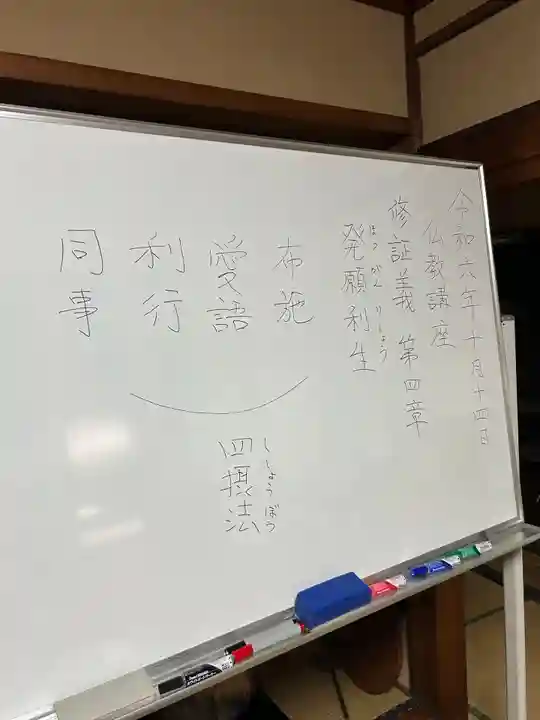 令和六年十月十四日
仏教講座
修証義 第四章
ほつ がん りしょう
発願利生
布施
愛語
利行
同事
ししょうぼう
四摂法